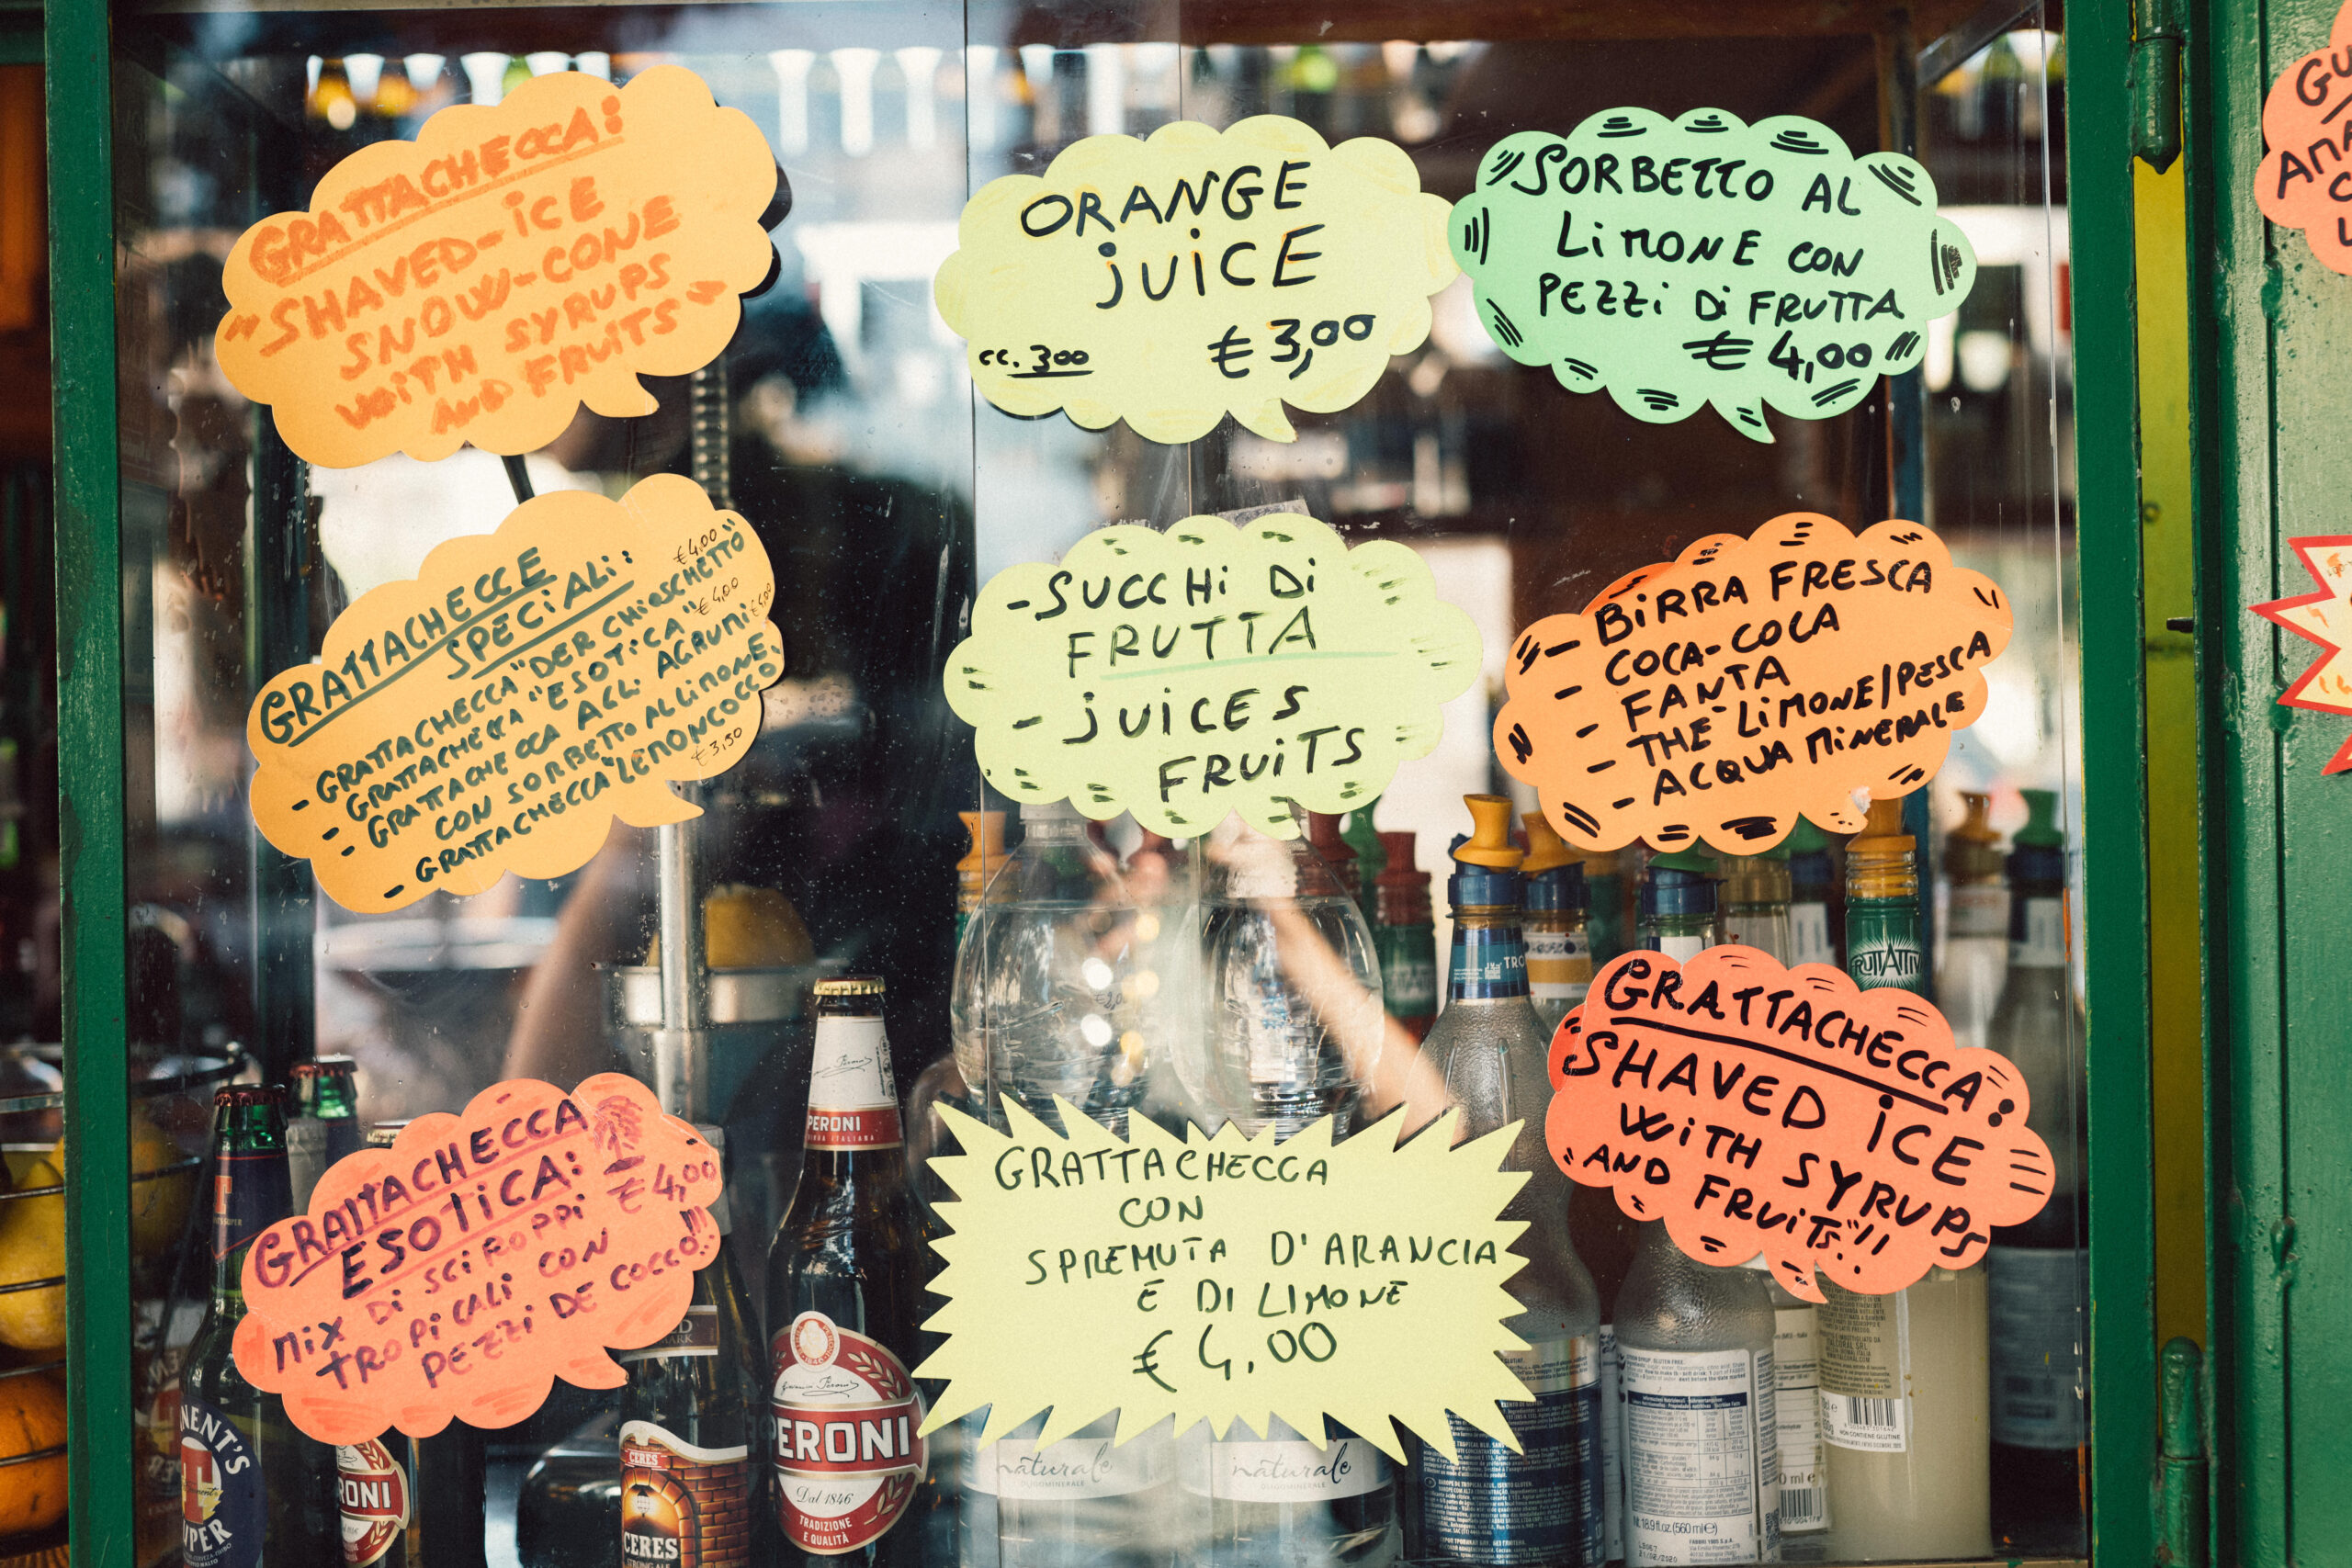 GRATTACHECCA:
"SHAVED-iCE
SNOW-CONE
WiTH SYRUPS
AND FRUiTS"
ORANGE
jUiCE
€ 3,00
cc. 300
SORBETTO AL
LiMONE CON
PEZZi Di FRUTTA
€ 4,00
GRATTACHECCE
SPECiALi:
€4,00
- GRATTACHECCA "DER CHiOSCHETTO"
- GRATTACHECCA "ESOTiCA" €4,00
- GRATTACHECCA AGLi AGRUMi €4,00
CON SORBETTO AL LiMONE.
- GRATTACHECCA "LEMONCOCCO"
€3,50
- SUCCHi Di
FRUTTA
- jUiCES
FRUiTS
- BiRRA FRESCA
- COCA-COLA
- FANTA
- THE LiMONE/PESCA
- ACQUA MiNERALE
GRATTACHECCA
ESOTiCA:
€ 4,00
MiX Di SCiROPPi
TROPiCALi CON
PEZZi DE COCCO!!!
GRATTACHECCA
CON
SPREMUTA D'ARANCIA
E DI LIMONE
€ 4,00
GRATTACHECCA:
SHAVED iCE
WiTH SYRUPS
"AND FRUiTS"!!
PERONI
BIRRA ITALIANA
PERONI
Dal 1846
TRADIZIONE
E QUALITÀ
RONI
CERES
CERES
NENT'S
T
UPER
naturale
OLIGOMINERALE
naturale
OLIGOMINERALE
FRUTTATTIV
TRO
GLUTEN FREE
18.9 fl.oz. (560 ml e)
NON CONTIENE GLUTINE
GU